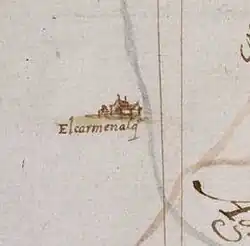 El carmenalq